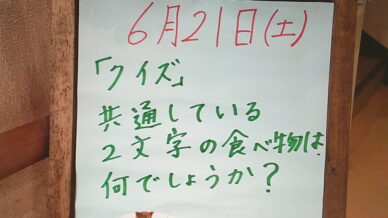 6月21日(土)
「クイズ」
共通している
2文字の食べ物は
何でしょうか?